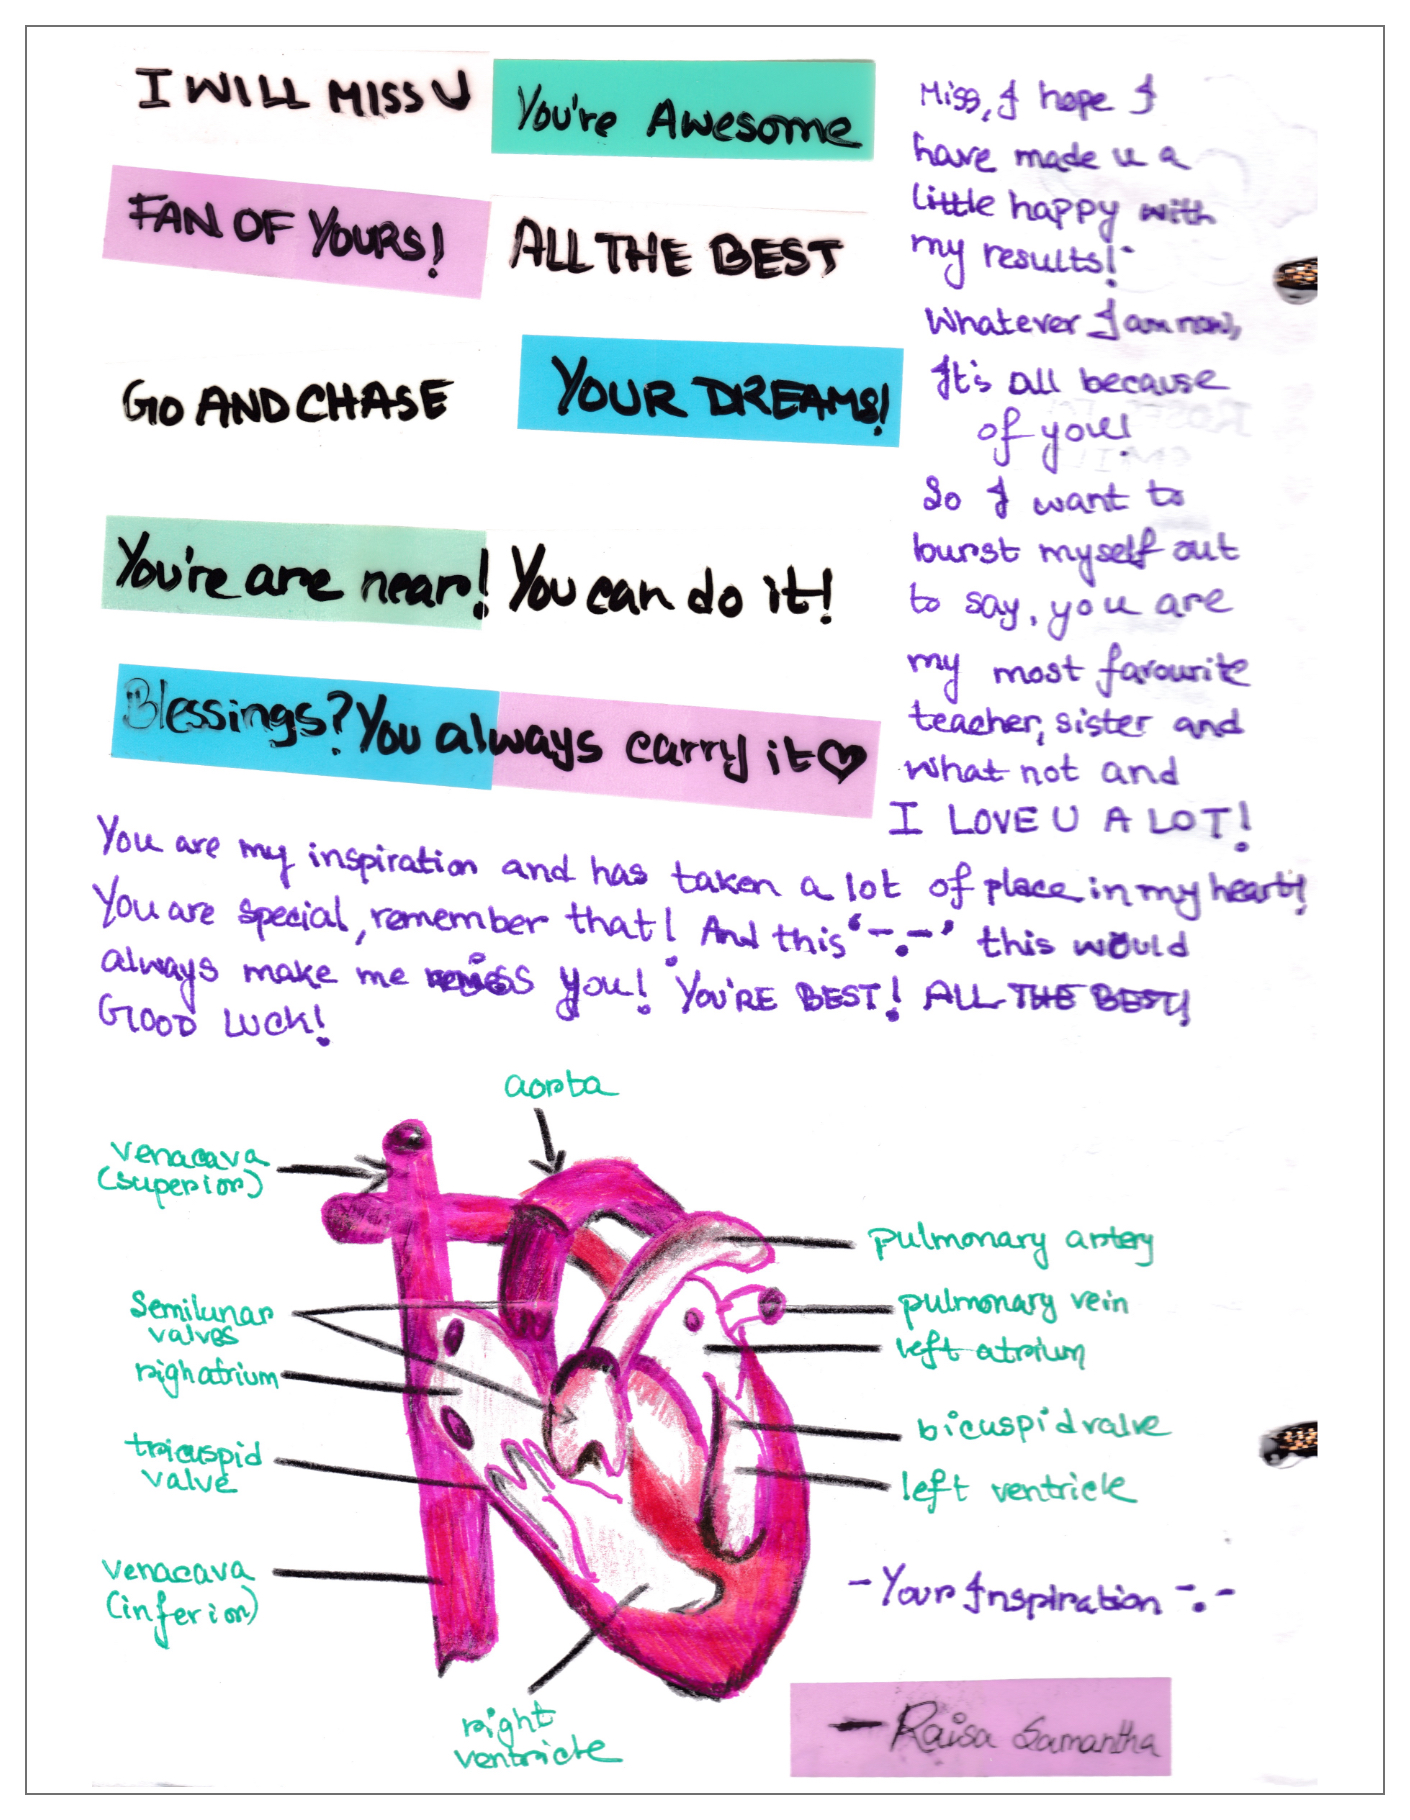 I WILL MISS U
You're Awesome
FAN OF YOURS!
ALL THE BEST
GO AND CHASE
YOUR DREAMS!
You're are near! You can do it!
Blessings? You always carry it♡
Miss, I hope I
have made u a
little happy with
my results!
Whatever I am now,
It's all because
of you!
So I want to
burst myself out
to say, you are
my most favourite
teacher, sister and
what not and
I LOVE U A LOT!
You are my inspiration and has taken a lot of place in my heart!
You are special, remember that! And this '-.-' this would
always make me miss you! YOU'RE BEST! ALL THE BEST!
GOOD LUCK!
aorta
venacava
(superior)
pulmonary artery
Semilunar
valves
pulmonary vein
left atrium
righatrium
bicuspid valve
tricuspid
valve
left ventricle
venacava
(inferior)
- Your Inspiration -.-
right
ventricle
- Raisa Samantha